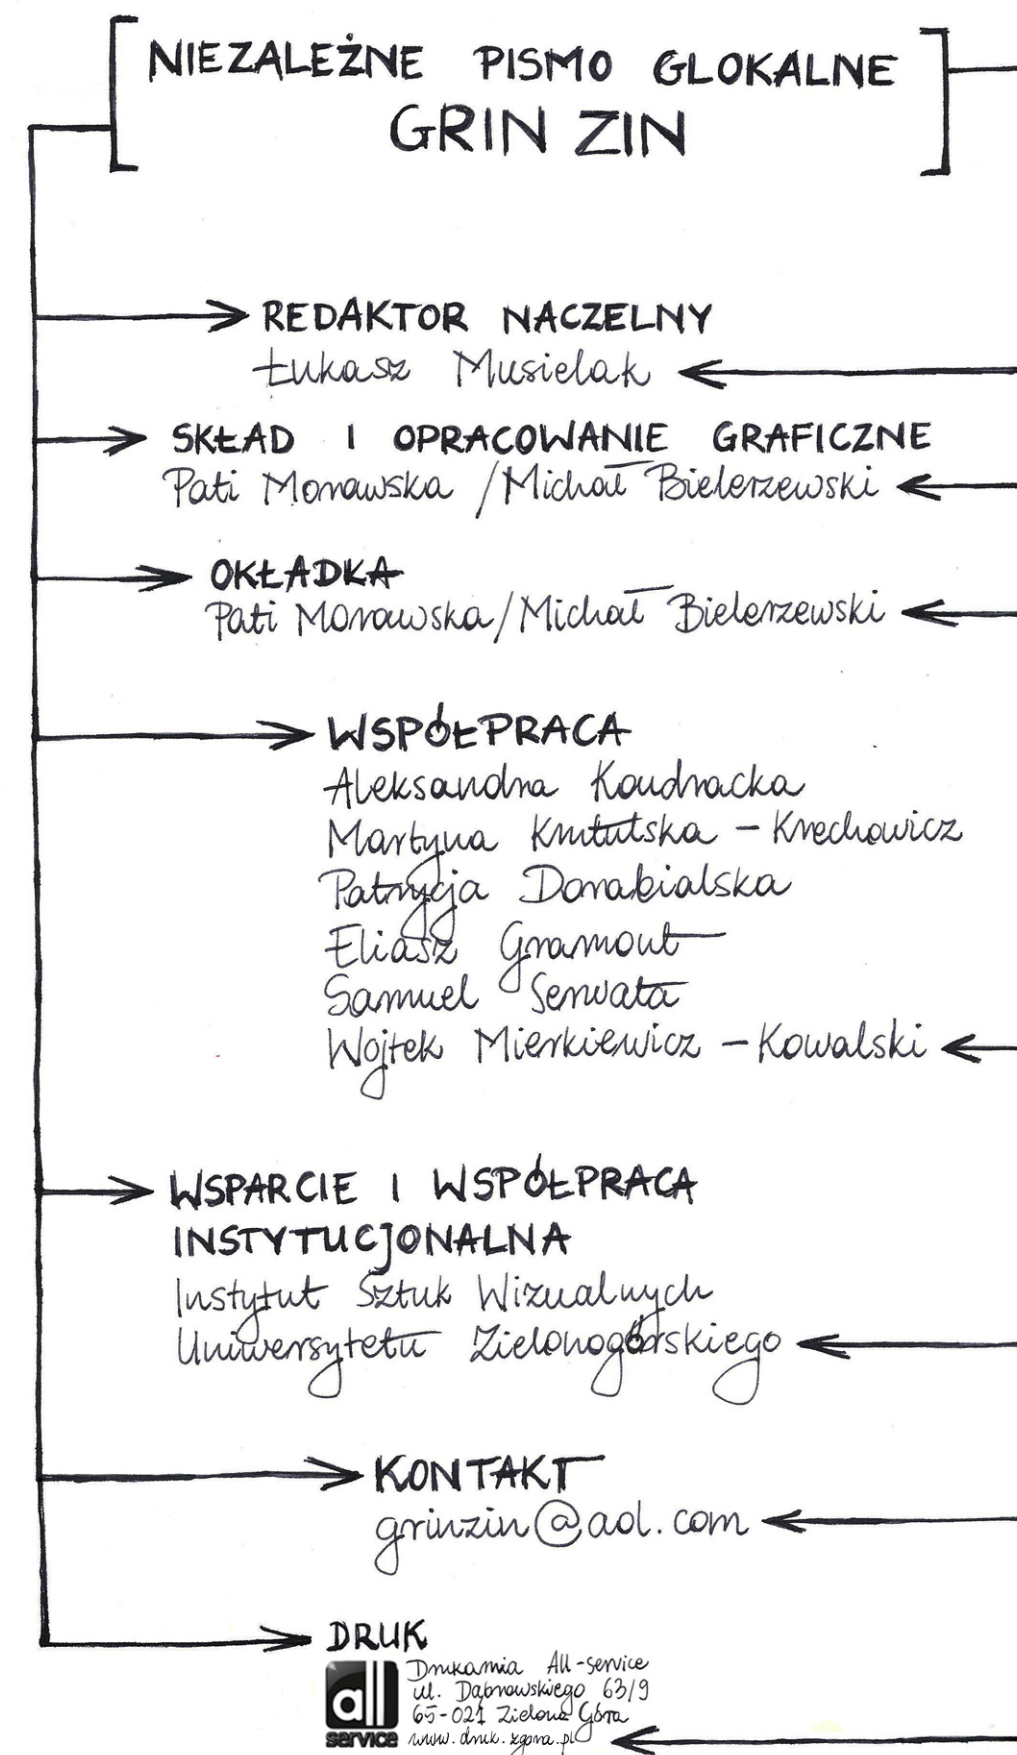 NIEZALEŻNE PISMO GLOKALNE
GRIN ZIN
REDAKTOR NACZELNY
Łukasz Musielak
SKŁAD I OPRACOWANIE GRAFICZNE
Pati Morawska / Michał Bielerzewski
OKŁADKA
Pati Morawska / Michał Bielerzewski
WSPÓŁPRACA
Aleksandra Kondracka
Martyna Kmtutska - Krechowicz
Patrycja Dorabialska
Eliasz Gramont
Samuel Serwata
Wojtek Mierkiewicz - Kowalski
WSPARCIE I WSPÓŁPRACA
INSTYTUCJONALNA
Instytut Sztuk Wizualnych
Uniwersytetu Zielonogórskiego
KONTAKT
grinzin@aol.com
DRUK
all
service
Drukarnia All-service
ul. Dąbrowskiego 63/9
65-021 Zielona Góra
www.druk.zgora.pl